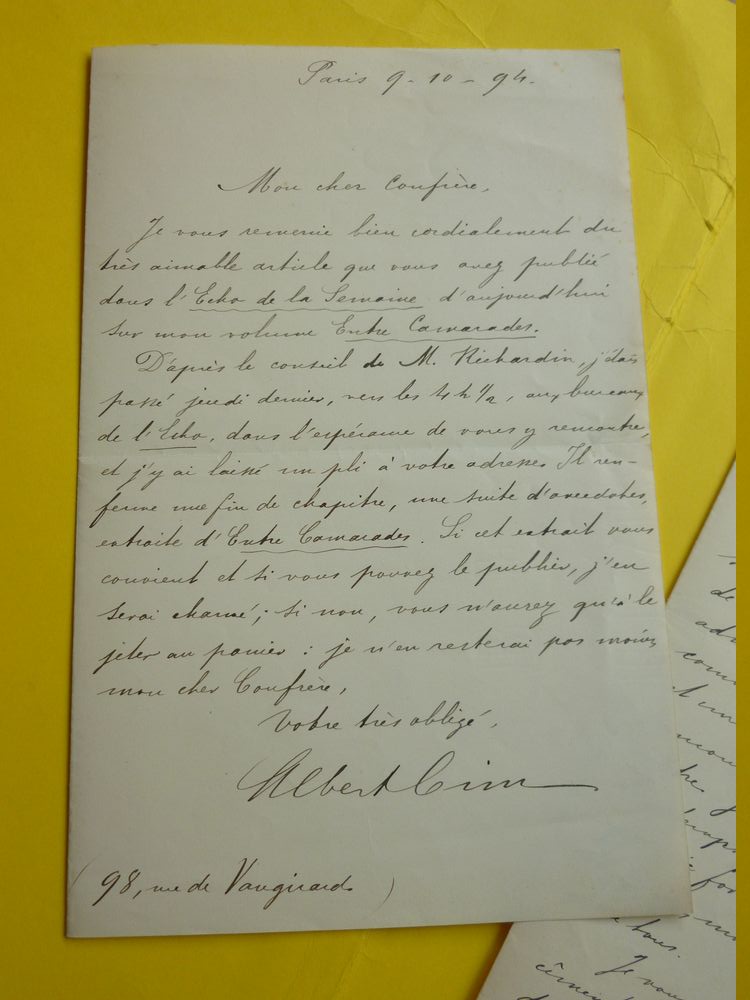 Paris 9-10-94.
Mon cher Confrère,
Je vous remercie bien cordialement du
très aimable article que vous avez publié
dans l'Echo de la Semaine d'aujourd'hui
sur mon volume Entre Camarades.
D'après le conseil de M. Richardin, j'étais
passé jeudi dernier, vers les 4 h 1/2, aux bureaux
de l'Echo, dans l'espérance de vous y rencontrer,
et j'y ai laissé un pli à votre adresse. Il ren-
ferme une fin de chapitre, une suite d'anecdotes,
extraite d'Entre Camarades. Si cet extrait vous
convient et si vous pouvez le publier, j'en
serai charmé; si non, vous n'aurez qu'à le
jeter au panier : je n'en resterai pas moins,
mon cher Confrère,
Votre très obligé,
Albert Cim
(98, rue de Vaugirard)
de
com
mou
tous.
Je vous